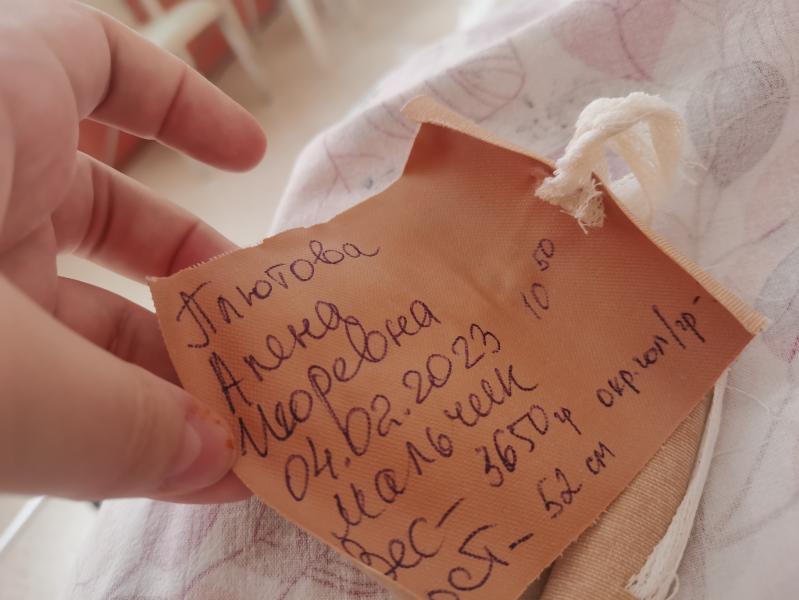 Плютова
Алена
Игоревна
04.02.2023 10 50
Мальчик
Вес- 3650 гр окр. гол/гр-
ост- 52 см